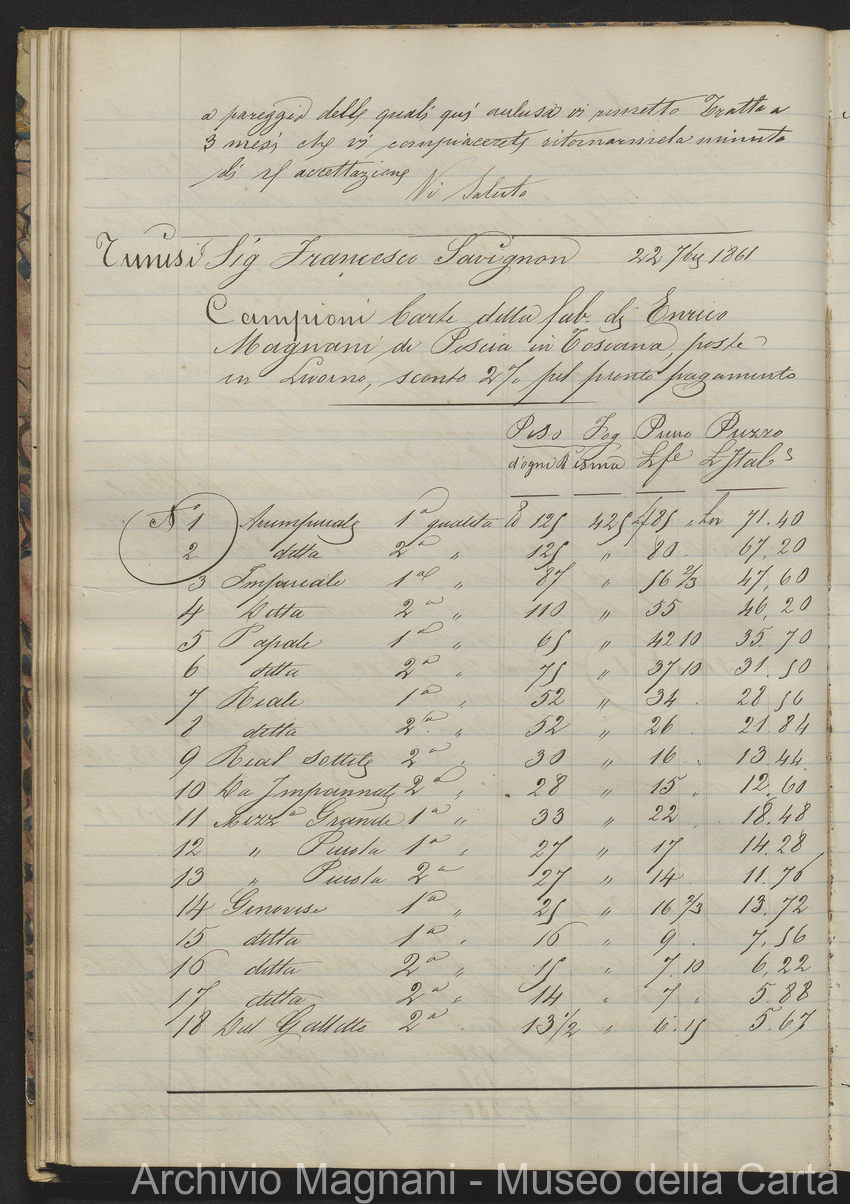 a pareggio delle quali qui acclusa vi rimetto Tratta a
3 mesi che vi compiacerete ritornarmela munita
di accettazione
Vi Saluto
Tunisi Sig Francesco Savignon 22 7bre 1861
Campioni Carte della fab. di Enrico
Magnani di Pescia in Toscana, poste
in Livorno, sconto 2% pel pronto pagamento
Peso Fog Prezzo Prezzo
d'ogni Risma Lfe L Ital
N° 1 1a qualità 125 425 85 " Ln 71.40
2 detta 2a " 125 " 80 . 67.20
3 Imperiale 1a " 87 " 56 2/3 47.60
4 Detta 2a " 110 " 55 46.20
5 Papale 1a " 65 " 42 10 35.70
6 detta 2a " 75 " 37 10 31.50
7 Reale 1a " 52 " 34 . 28 56
8 detta 2a " 52 " 26 . 21.84
9 Real sottile 2a " 30 " 16 . 13.44
10 Da Impannate 2a " 28 " 15 " 12.60
11 Mezza Grande 1a " 33 " 22 18.48
12 " Piccola 1a " 27 " 17 14.28
13 " Piccola 2a 27 " 14 11.76
14 Genovese 1a " 25 " 16 1/3 13.72
15 detta 1a " 16 " 9 . 7.56
16 detta 2a " 15 " 7.10 6.22
17 detta 2a " 14 " 7 " 5.88
18 Dal Galletto 2a . 13 1/2 " 6.15 5.67
Archivio Magnani - Museo della Carta